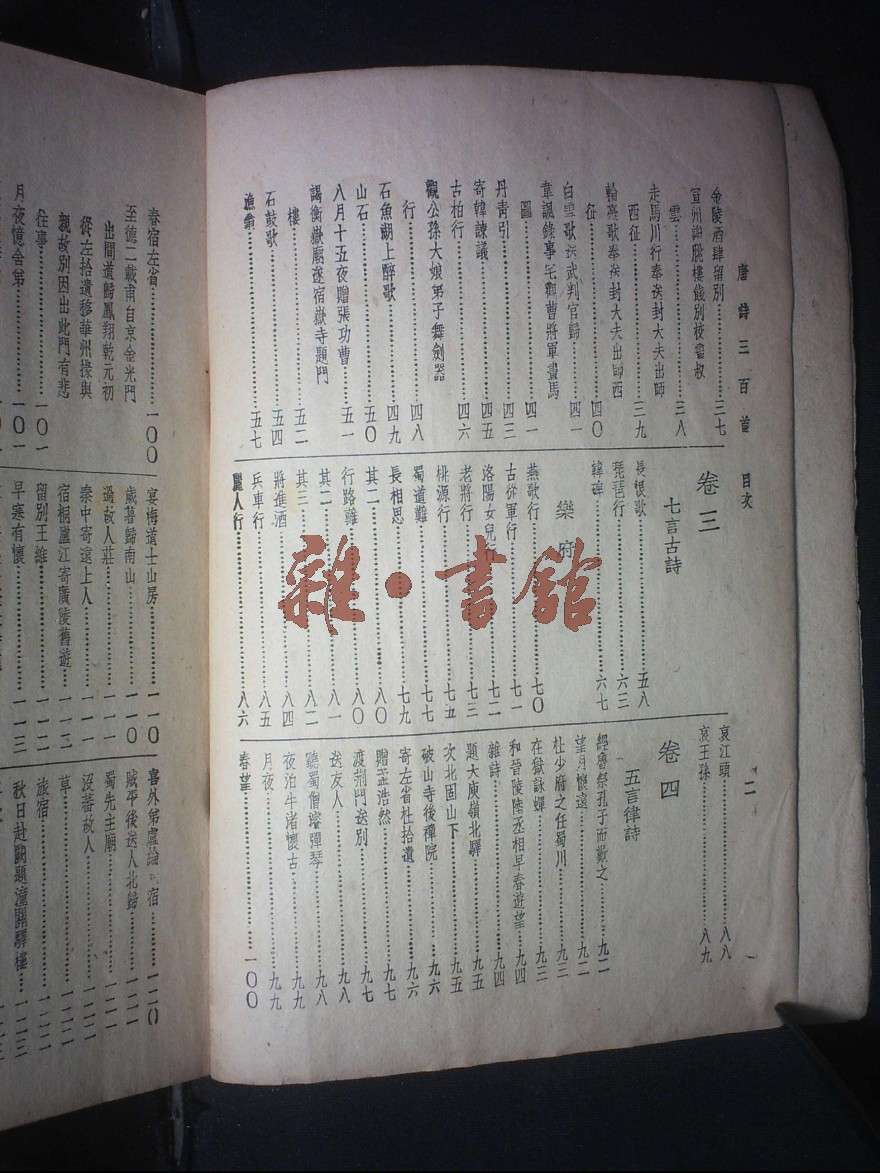 唐詩三百首　目次
二
金陵酒肆留別……三七
宣州謝朓樓餞別校書叔
雲……三八
走馬川行奉送封大夫出師
西征……三九
輪臺歌奉送封大夫出師西
征……四〇
白雪歌送武判官歸……四一
韋諷錄事宅觀曹將軍畫馬
圖……四一
丹青引……四三
寄韓諫議……四五
古柏行……四六
觀公孫大娘弟子舞劍器
行……四八
石魚湖上醉歌……四九
山石……五〇
八月十五夜贈張功曹……五一
謁衡嶽廟遂宿嶽寺題門
樓……五二
石鼓歌……五四
漁翁……五七
卷三
七言古詩
長恨歌……五八
琵琶行……六三
韓碑……六七
樂府
燕歌行……七〇
古從軍行……七一
洛陽女兒行……七二
老將行……七三
桃源行……七五
蜀道難……七七
長相思……七九
其二……八〇
行路難……八〇
其二……八一
其三……八二
將進酒……八四
兵車行……八五
麗人行……八六
哀江頭……八八
哀王孫……八九
卷四
五言律詩
經魯祭孔子而歎之……九二
望月懷遠……九二
杜少府之任蜀川……九三
在獄詠蟬……九三
和晉陵陸丞相早春遊望……九四
雜詩……九四
題大庾嶺北驛……九五
次北固山下……九五
破山寺後禪院……九六
寄左省杜拾遺……九六
贈孟浩然……九七
渡荊門送別……九七
送友人……九八
聽蜀僧濬彈琴……九八
夜泊牛渚懷古……九九
月夜……九九
春望……一〇〇
春宿左省……一〇〇
至德二載甫自京金光門
出間道歸鳳翔乾元初
從左拾遺移華州掾與
親故別因出此門有悲
往事……一〇一
月夜憶舍弟……一〇一
宴梅道士山房……一一〇
歲暮歸南山……一一〇
過故人莊……一一一
秦中寄遠上人……一一一
宿桐廬江寄廣陵舊遊……一一二
留別王維……一一二
早寒有懷……一一三
喜外弟盧綸……宿……一二〇
賊平後送人北歸……一二一
蜀先主廟……一二一
沒蕃故人……一二二
草……一二二
旅宿……一二二
秋日赴闕題潼關驛樓……一二三
雜·書館